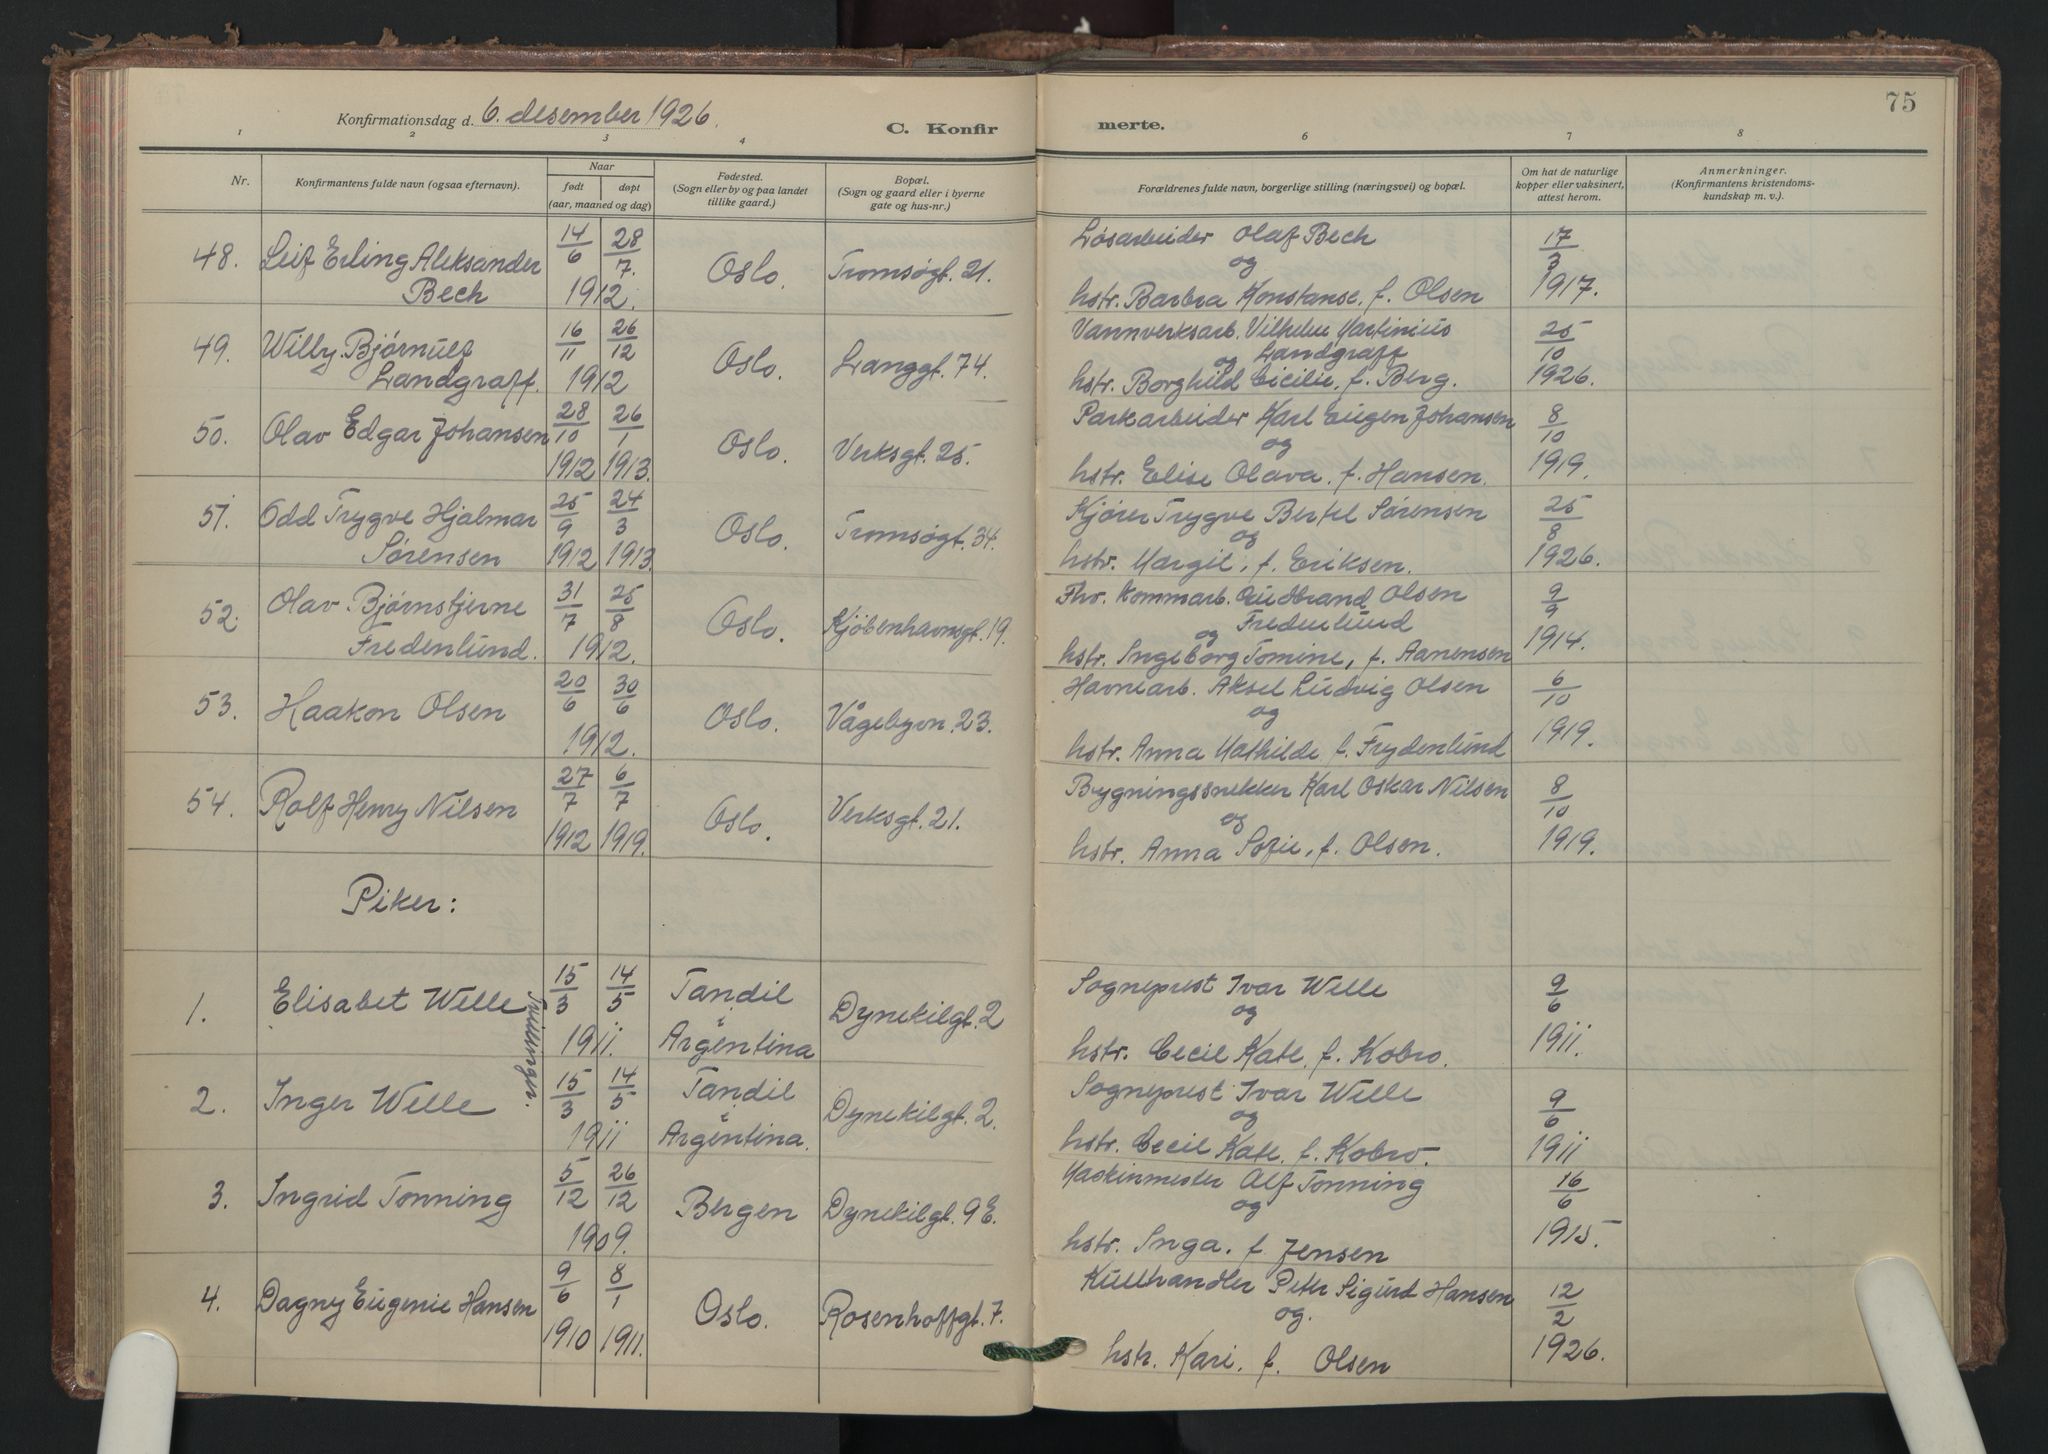 75
Konfirmationsdag d. 6. desember 1926.
C. Konfirmerte.
1 2 3 4 6 7 8
Nr.
Konfirmantens fulde navn (ogsaa efternavn).
Naar
født døpt
(aar, maaned og dag)
Fødested.
(Sogn eller by og paa landet
tillike gaard.)
Bopæl.
(Sogn og gaard eller i byerne
gate og hus-nr.)
Forældrenes fulde navn, borgerlige stilling (næringsvei) og bopæl.
Om hat de naturlige
kopper eller vaksinert,
attest herom.
Anmerkninger.
(Konfirmantens kristendoms-
kundskap m. v.).
48. Leif Erling Aleksander 14/6 28/7. Oslo. Tromsøgt. 21. Løsarbeider Olaf Bech 17/3
og
Bech 1912. hstr. Barbra Konstanse, f. Olsen 1917.
49. Willy Bjørnulf 16/11 26/12 Oslo. Langgt. 74. Vannverksarb. Vilhelm Martinius 25/10
og Landgraff
Landgraff. 1912 hstr. Borghild Cicilie, f. Berg. 1926.
50. Olav Edgar Johansen 28/10 26/1 Oslo. Verksgt. 25. Parkarbeider Karl Eugen Johansen 8/10
og
1912 1913. hstr. Elise Olava, f. Hansen. 1919.
51. Odd Trygve Hjalmar 25/9 24/3 Oslo. Tromsøgt. 34. Kjører Trygve Bertel Sørensen 25/8
og
Sørensen 1912 1913. hstr. Margit, f. Eriksen. 1926.
52. Olav Bjørnstjerne 31/7 25/8 Oslo. Kjøbenhavnsgt. 19. Fhv. kommarb. Gudbrand Olsen 9/9
og Fredenlund
Fredenlund. 1912. hstr. Ingeborg Tomine, f. Aanensen 1914.
53. Haakon Olsen 20/6 30/6 Oslo. Vågebyvn. 23. Havnearb. Aksel Ludvig Olsen 6/10
og
1912. hstr. Anna Mathilde, f. Frydenlund 1919.
54. Rolf Henry Nilsen 27/7 6/7 Oslo. Verksgt. 21. Bygningssnekker Karl Oskar Nilsen 8/10
og
1912 1919. hstr. Anna Sofie, f. Olsen. 1919.
Piker:
1. Elisabet Welle 15/3 14/5 Tandil Dynekilgt. 2 Sogneprest Ivar Welle 9/6
i og
1911. Argentina hstr. Cecil Kate, f. Kobro. 1911.
Tvillinger.
2. Inger Welle 15/3 14/5 Tandil Dynekilgt. 2. Sogneprest Ivar Welle 9/6
i og
1911 Argentina. hstr. Cecil Kate, f. Kobro. 1911
3. Ingrid Tonning 5/12 26/12 Bergen Dynekilgt. 9 E. Maskinmester Alf Tonning 16/6
og
1909. hstr. Inga, f. Jensen 1915.
4. Dagny Eugenie Hansen 9/6 8/1 Oslo. Rosenhoffgt. 7. Kullhandler Peter Sigurd Hansen 12/2
og.
1910 1911. hstr. Kari, f. Olsen 1926.